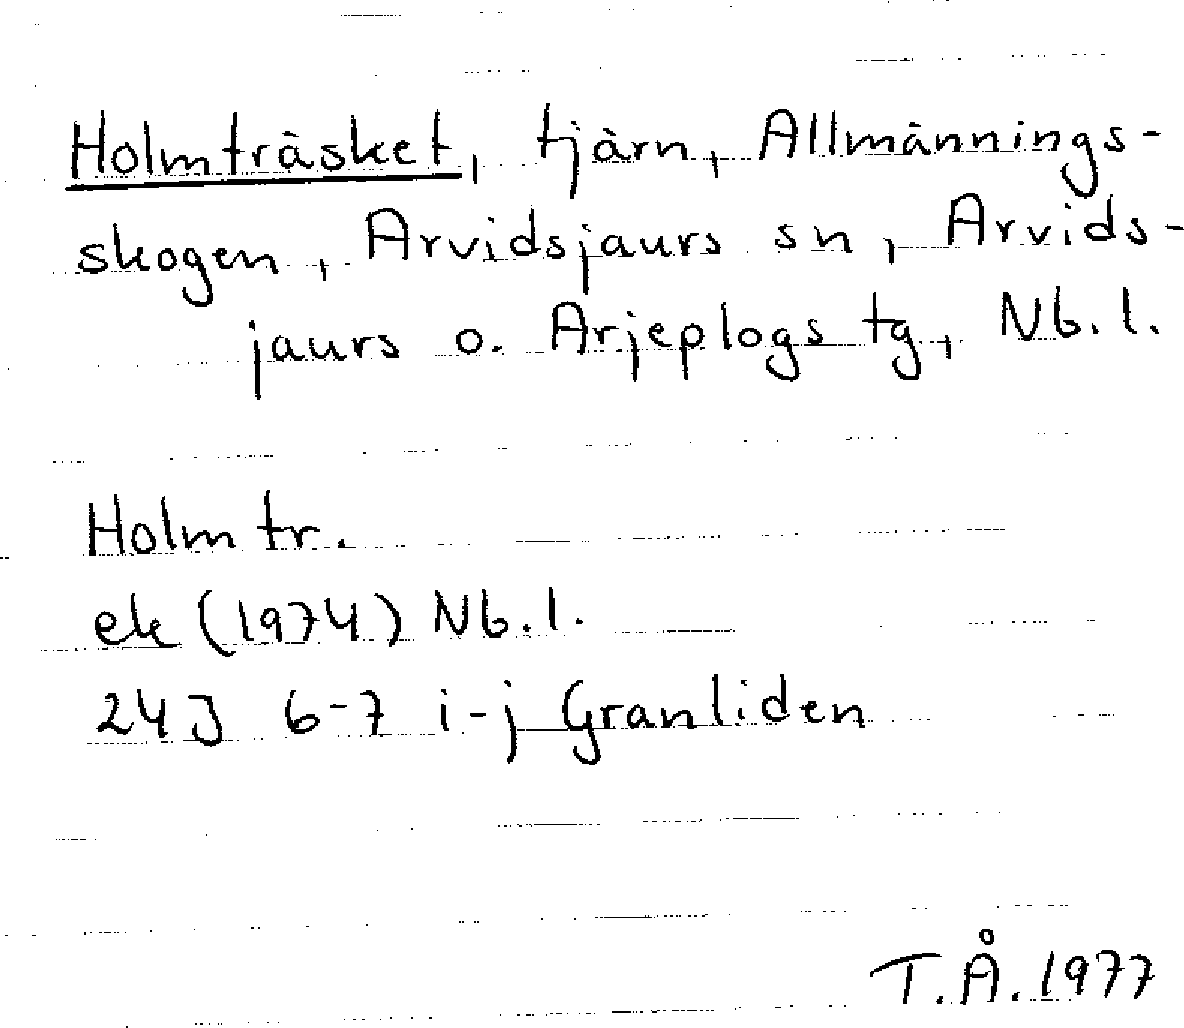 Holmträsket, tjärn, Allmännings-
skogen, Arvidsjaurs sn, Arvids-
jaurs o. Arjeplogs tg, Nb.l.
Holmtr.
ek (1974) Nb.l.
24J 6-7 i-j Granliden
T.Å. 1977